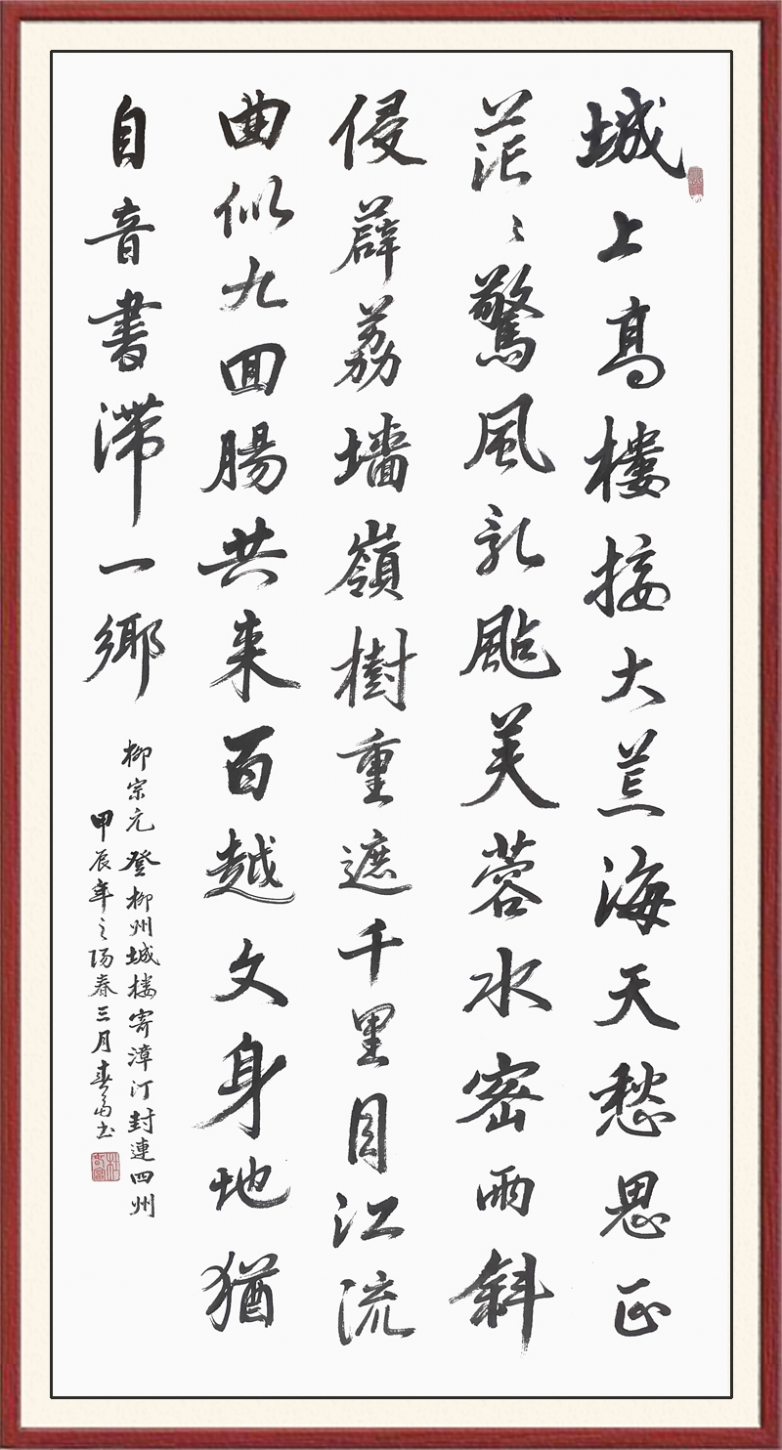 城上高樓接大荒海天愁思正
茫〻驚風乱颭芙蓉水密雨斜
侵薜荔墙嶺樹重遮千里目江流
曲似九囬腸共来百越文身地猶
自音書滞一鄉
柳宗元登柳州城楼寄漳汀封連四州
甲辰年之阳春三月书